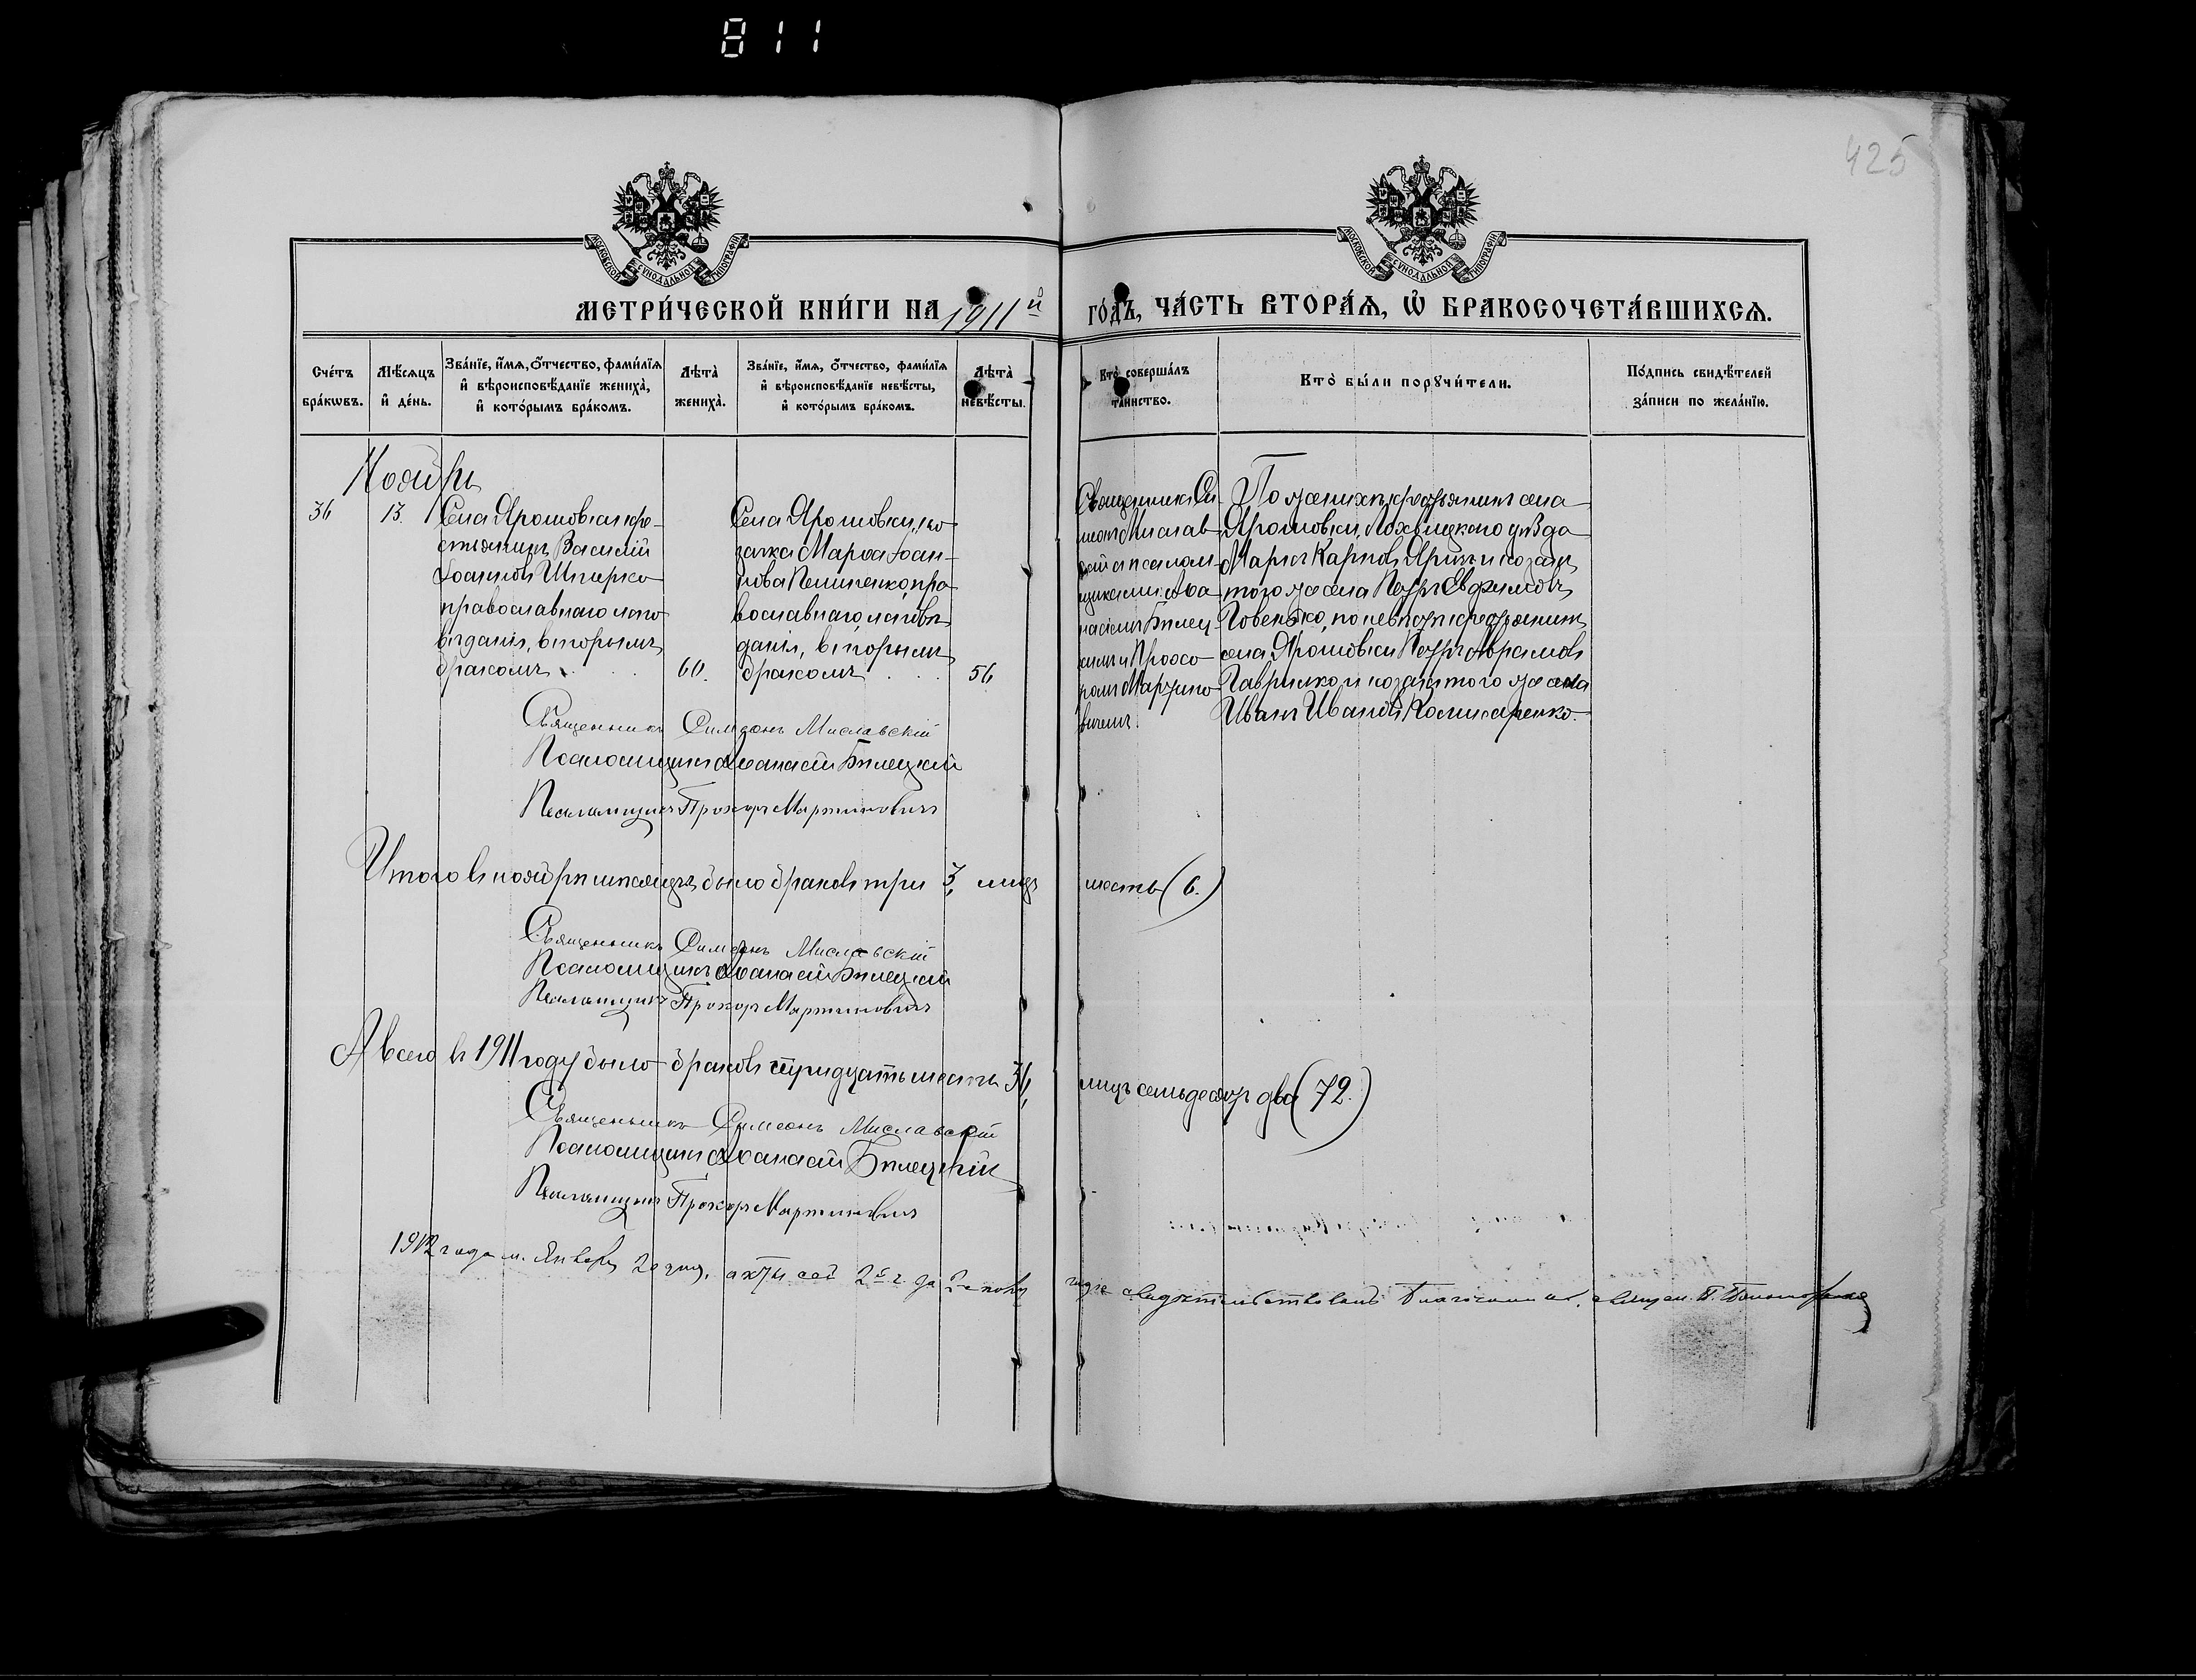 811
425
МОСКОВСКОЙ СѴНОДАЛЬНОЙ ТИПОГРАФІИ
МОСКОВСКОЙ СѴНОДАЛЬНОЙ ТИПОГРАФІИ
МЕТРИ́ЧЕСКОЙ КНИ́ГИ НА 1911й ГО́ДЪ, ЧА́СТЬ ВТОРА́Ѧ, Ѡ҆ БРАКОСОЧЕТА́ВШИХСѦ.
Сче́тъ бра́кѡвъ.
Мѣ́сяцъ и҆ де́нь.
Зва́нїе, и҆́мя, ѻ҆́тчество, фами́лїя и҆ вѣроисповѣ́данїе жениха̀, и҆ кото́рымъ бра́комъ.
Лѣта̀ жениха̀.
Зва́нїе, и҆́мя, ѻ҆́тчество, фами́лїя и҆ вѣроисповѣ́данїе невѣ́сты, и҆ кото́рымъ бра́комъ.
Лѣта̀ невѣ́сты.
Кто̀ соверша́лъ та́инство.
Кто̀ бы́ли порꙋчи́тели.
По́дпись свидѣ́телей за́писи по жела́нїю.
Ноябрь
36
13.
Села Ярошовки кре-
стьянинъ Василій
Іоанновъ
православнаго испо
вѣданія, вторымъ
бракомъ . . .
60.
Села Ярошовки, ко
зачка Марѳа Іоан-
нова Пелипенко, пра
вославнаго исповѣ
данія, вторымъ
бракомъ . . .
56
Священникъ Си-
меонъ Мислав-
скій съ псалом-
щиками Аѳа-
насіемъ Билец-
кимъ и Прохо-
ромъ Мартино-
вичемъ.
По женихѣ: крестьянинъ села
Ярошовки, Лохвицкаго уѣзда
Маркъ Карповъ Ярышъ и козакъ
того же села Петръ Евфимовъ
Говенько, по невѣстѣ: крестьянинъ
села Ярошовки Петръ Аврамовъ
Гаврилко и козакъ того же села
Иванъ Ивановъ Комисаренко.
Священникъ Симеонъ Миславскій
Псаломщикъ Аѳанасій Билецкій
Псаломщикъ Прохоръ Мартиновичъ
Итого въ ноябрѣ мѣсяцѣ было браковъ три 3, лицъ шесть (6.)
Священникъ Симеонъ Миславскій
Псаломщикъ Аѳанасій Билецкій
Псаломщикъ Прохоръ Мартиновичъ
А всего въ 1911 году было браковъ тридцать шесть 36, лицъ семьдесятъ два (72.)
Священникъ Симеонъ Миславскій
Псаломщикъ Аѳанасій Билецкій
Псаломщикъ Прохоръ Мартиновичъ
1912 года м. Января 20 дня, акты сей 2й ч. за 2е полугодіе свидѣтельствовалъ Благочинный, священ. П.